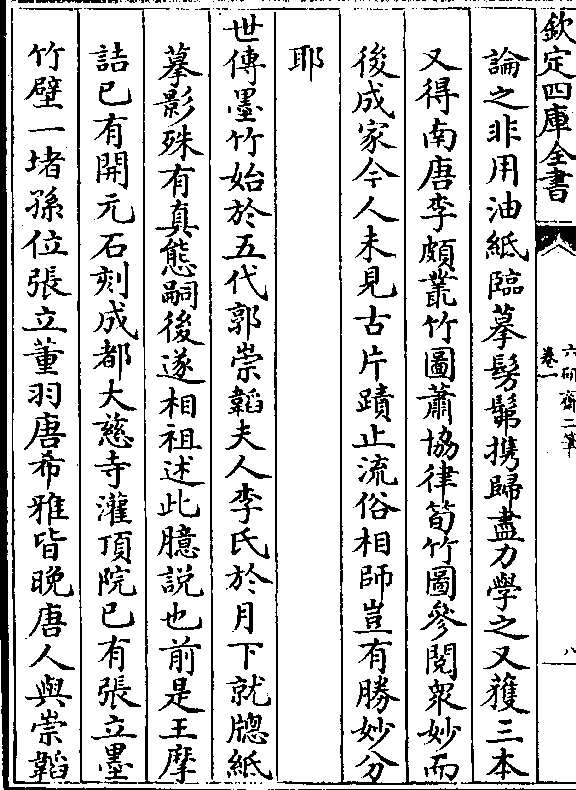 欽定四庫全書
卷一
六研齋二筆
八
論之非用油紙臨摹髣髴攜歸盡力學之又獲三本
又得南唐李頗叢竹圖蕭協律筍竹圖參閱衆妙而
後成家今人未見古片蹟止流俗相師豈有勝妙分
耶
世傳墨竹始於五代郭崇韜夫人李氏於月下就牕紙
摹影殊有真態嗣後遂相祖述此臆説也前是王摩
詰已有開元石刻成都大慈寺灌頂院已有張立墨
竹壁一堵孫位張立董羽唐希雅皆晚唐人與崇韜